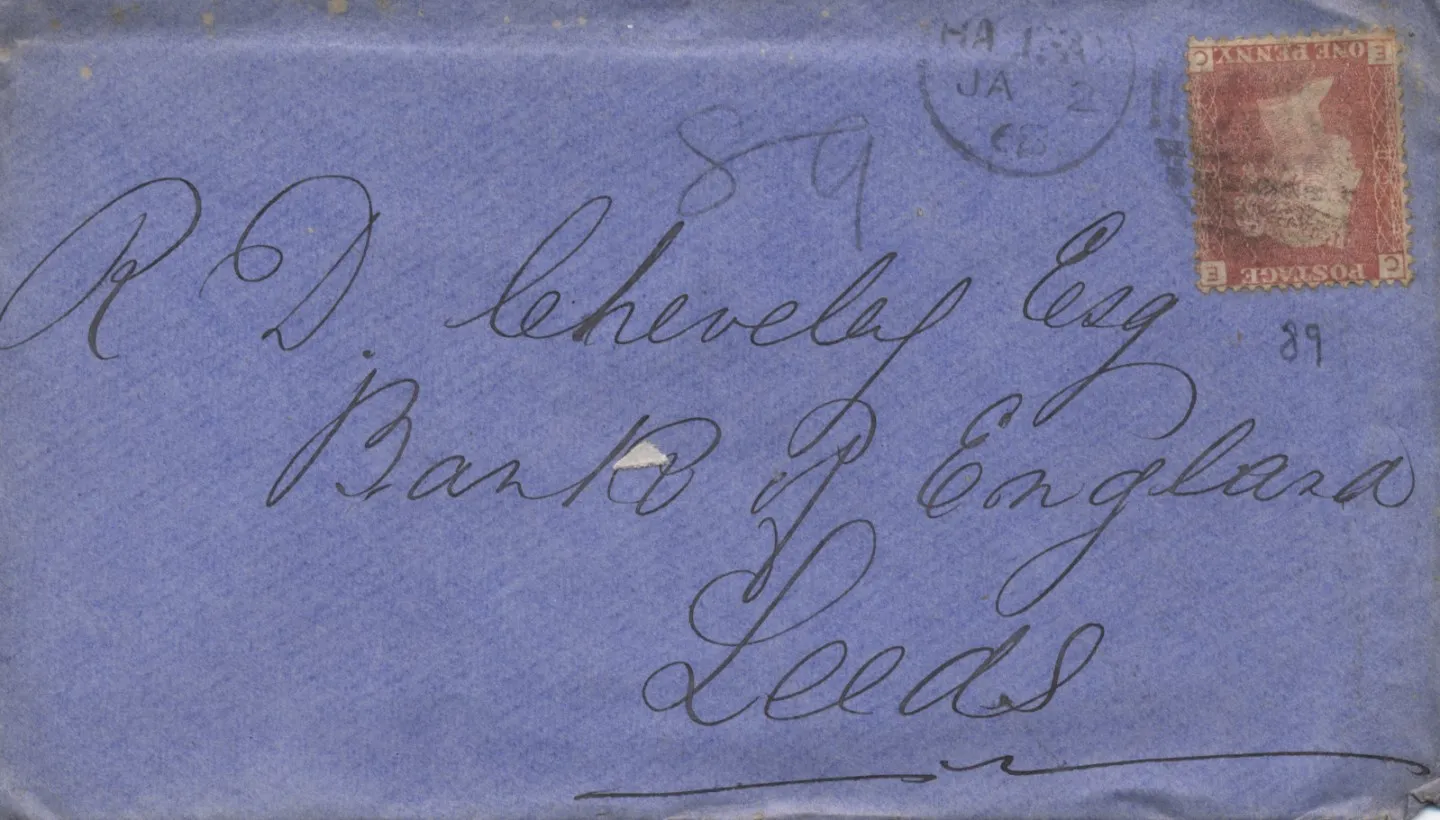 JA 2
89
R D. Cheveley Esq
Bank of England
Leeds
89
C E
ONE PENNY
POSTAGE
E C